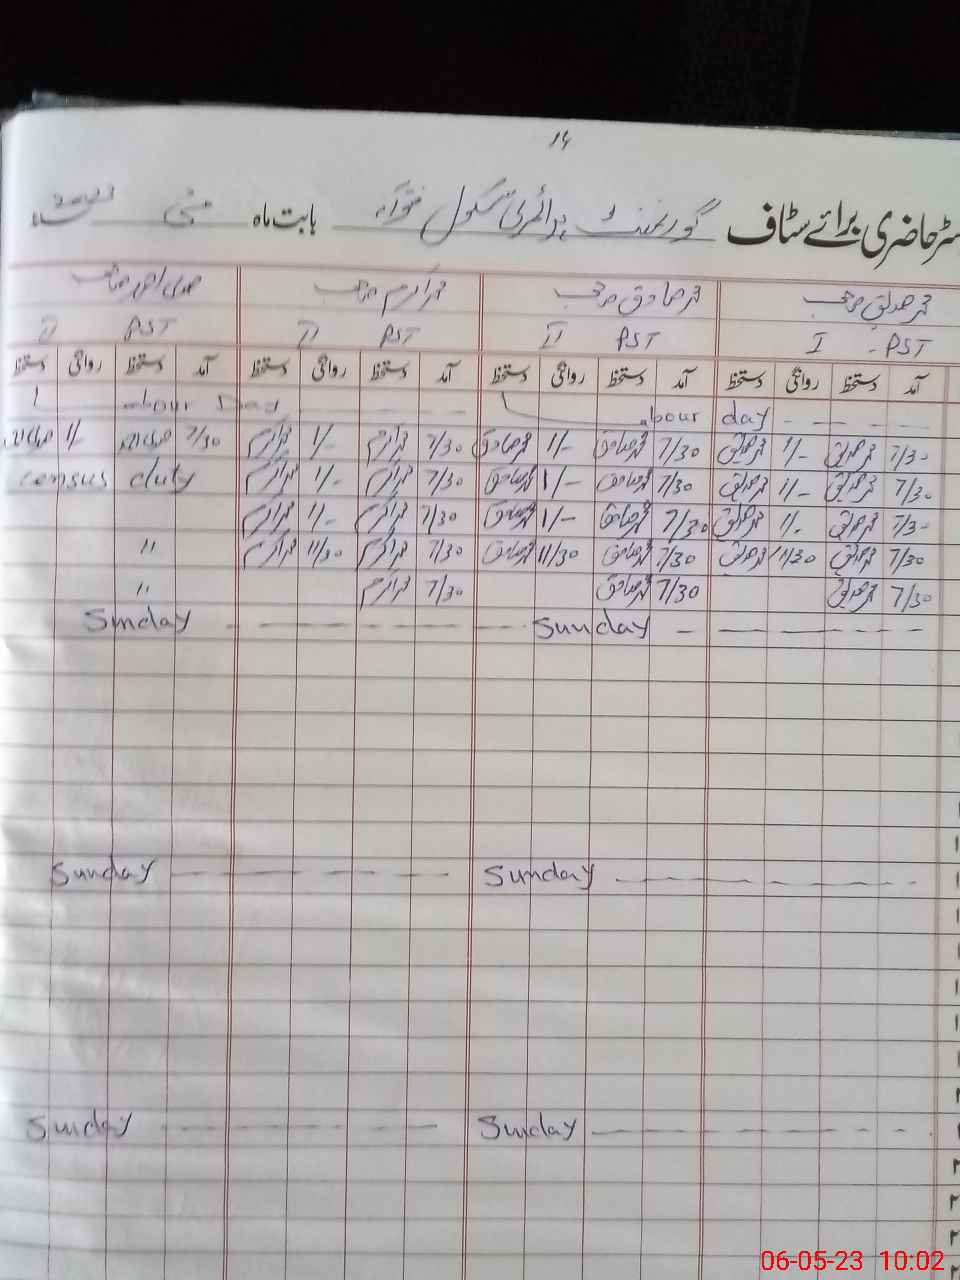 14
سٹر حاضری برائے سٹاف گورنمنٹ پرائمری سکول بابت ماہ مئی
محمد صدیق صاحب محمد صادق صاحب محمد اکرم صاحب
I - PST II PST II PST II PST
آمد دستخط روانگی دستخط آمد دستخط روانگی دستخط آمد دستخط روانگی دستخط آمد دستخط روانگی دستخط
Labour Day Labour day
7/30 محمد صدیق 1/- محمد صدیق 7/30 محمد صادق 1/- محمد صادق 7/30 محمد اکرم 1/- محمد اکرم 7/30 1/-
7/30 محمد صدیق 1/- محمد صدیق 7/30 محمد صادق 1/- محمد صادق 7/30 محمد اکرم 1/- محمد اکرم census duty
7/30 محمد صدیق 1/- محمد صدیق 7/30 محمد صادق 1/- محمد صادق 7/30 محمد اکرم 1/- محمد اکرم
7/30 محمد صدیق 11/30 محمد صدیق 7/30 محمد صادق 11/30 محمد صادق 7/30 محمد اکرم 11/30 محمد اکرم "
7/30 محمد صدیق 7/30 محمد صادق 7/30 محمد اکرم "
Sunday Sunday
Sunday Sunday
Sunday Sunday
06-05-23 10:02